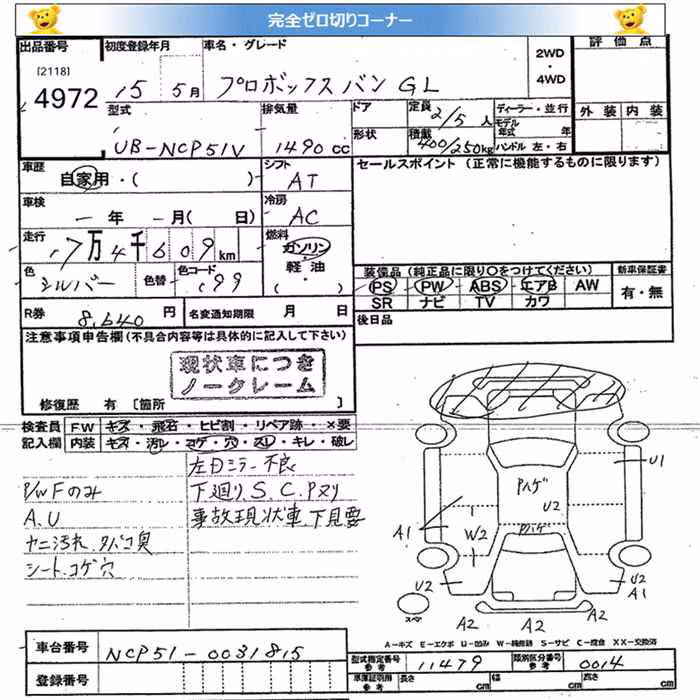 完全ゼロ切りコーナー
出品番号 初度登録年月 車名・グレード 評価点
[2118]
4972
15 5月 プロボックスバン GL
2WD
・
4WD
型式 排気量 ドア 定員 2/5人 ディーラー・並行 外装 内装
UB-NCP51V 1490cc 形状 積載 400/250kg モデル年式 年
ハンドル 左・右
車歴 シフト セールスポイント (正常に機能するものに限ります)
自家用・( ) AT
車検 冷房
一年 一月( 日) AC
走行 燃料
17万4千609km ガソリン
・
軽油
( )
色 色替 色コード
シルバー 199
装備品(純正品に限り○をつけてください) 新車保証書
PS PW ABS エアB AW 有・無
SR ナビ TV カワ
R券 8,640円 名変通知期限 月 日
後日品
注意事項申告欄(不具合内容等は具体的に記入して下さい)
現状車につき
ノークレーム
修復歴 有 〔箇所 〕
検査員 FW キズ・飛石・ヒビ割・リペア跡・×要
記入欄 内装 キズ・汚レ・コゲ・穴・スレ・キレ・破レ
左ドミラー不良
P/WFのみ 下廻りS.C.Pヌリ
A.U 事故現状車下見要
ヤニ汚れ.タバコ臭
シート.コゲ穴
U1
Pハゲ
U2
A1 W2 Pハゲ
U2 U2
A1
スペア A2 A2 A2
A-キズ E-エクボ U-凹み W-補修跡 S-サビ C-腐食 XX-交換済
車台番号 NCP51-0031815
型式指定番号 参考 11479 類別区分番号 参考 0014
登録番号
車庫証明用 参考 長さ cm 幅 cm 高さ cm